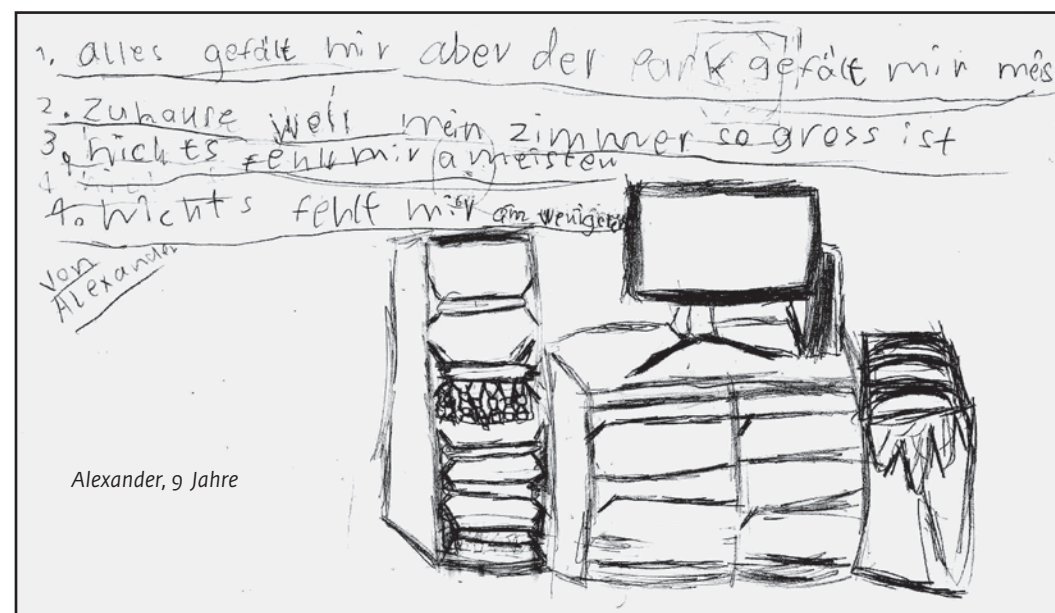 1. alles gefält mir aber der Park gefält mir mēs
2. Zuhause weil mein zimmer so gross ist
3. nichts fehlt mir a meisten
4. Nichts fehlt mir am wenigsten
von
Alexander
Alexander, 9 Jahre